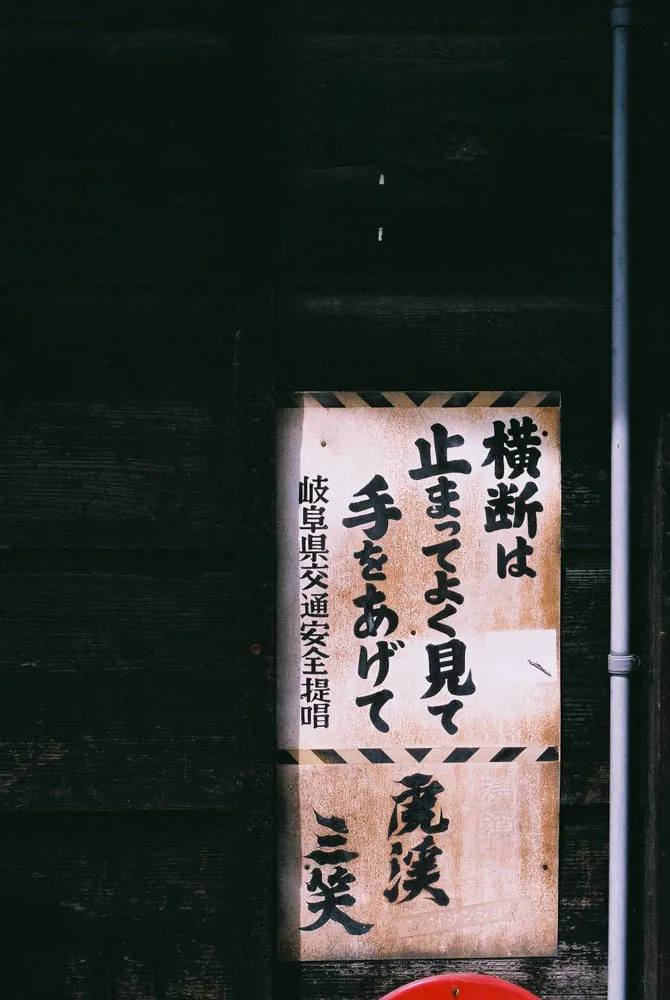 横断は
止まってよく見て
手をあげて
岐阜県交通安全提唱
清酒
虎渓
三笑